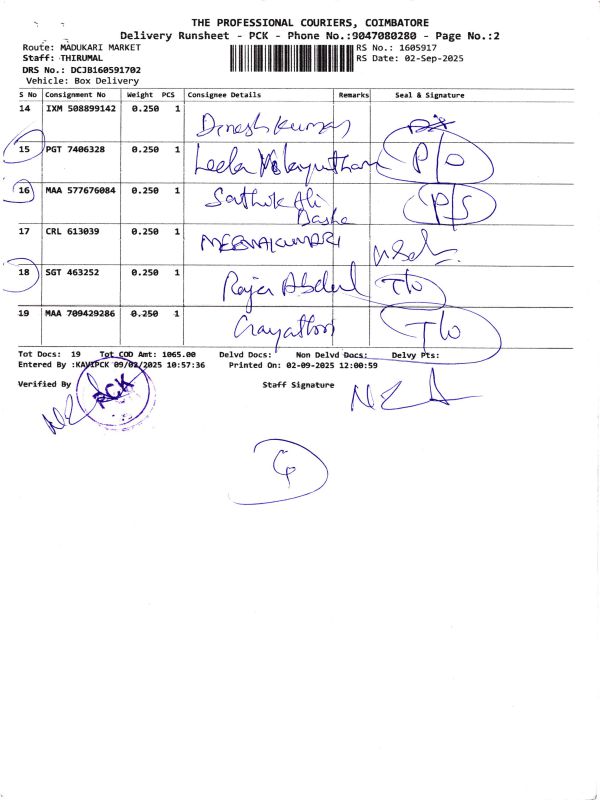 THE PROFESSIONAL COURIERS, COIMBATORE
Delivery Runsheet - PCK - Phone No.:9047080280 - Page No.:2
Route: MADUKARI MARKET
RS No.: 1605917
Staff: THIRUMAL
RS Date: 02-Sep-2025
DRS No.: DCJB160591702
Vehicle: Box Delivery
S No Consignment No Weight PCS Consignee Details Remarks Seal & Signature
14 IXM 508899142 0.250 1 Dinesh Kumar
15 PGT 7406328 0.250 1 Leela P/O
16 MAA 577676084 0.250 1 Sathik Ali P/S
Basha
17 CRL 613039 0.250 1 MEENAKUMARI
18 SGT 463252 0.250 1 Raja Abdul T/O
19 MAA 709429286 0.250 1 Gayathri T/O
Tot Docs: 19 Tot COD Amt: 1065.00 Delvd Docs: Non Delvd Docs: Delvy Pts:
Entered By :KAVIPCK 09/02/2025 10:57:36 Printed On: 02-09-2025 12:00:59
Verified By PCK Staff Signature